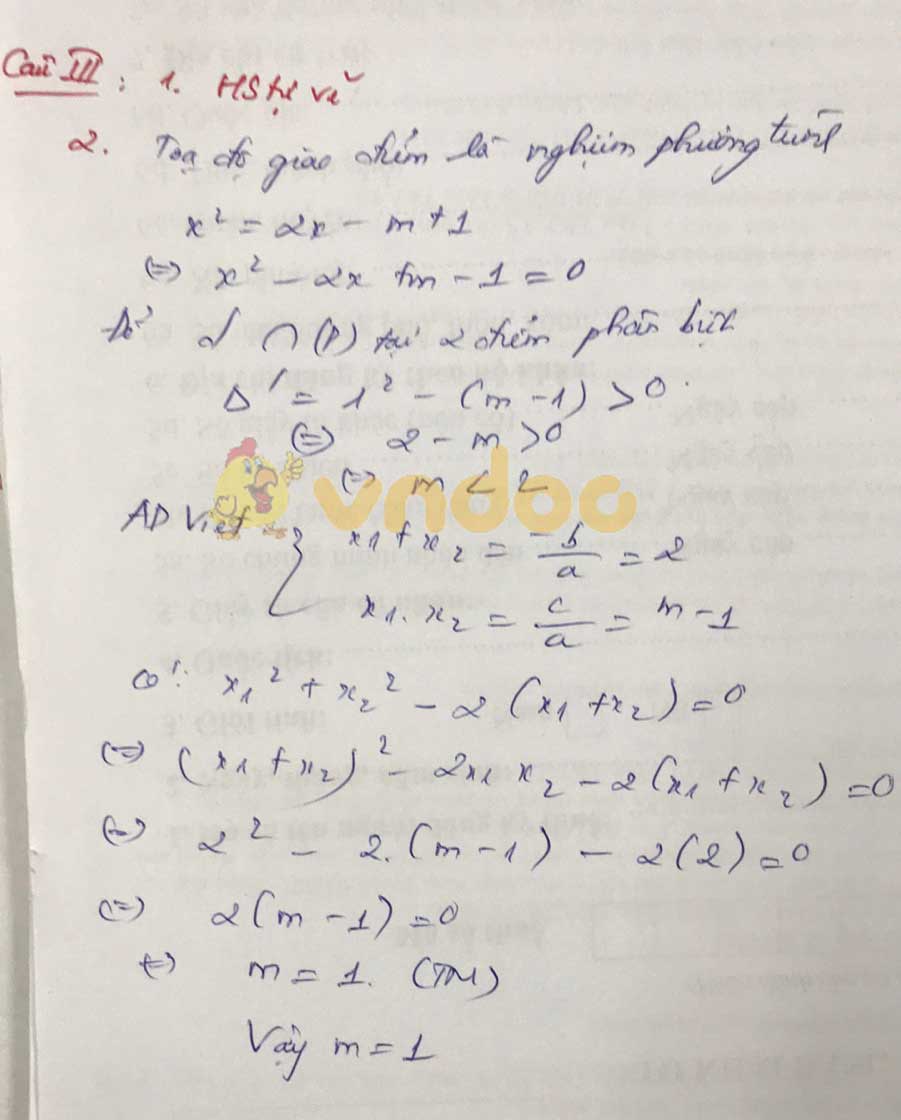 Câu III : 1. HS tự vẽ
2. Toạ độ giao điểm là nghiệm phương trình
x² = 2x - m + 1
(=) x² - 2x + m - 1 = 0
Để d ∩ (P) tại 2 điểm phân biệt
Δ' = 1² - (m - 1) > 0
(=) 2 - m > 0
(=) m < 2
vndoc
AD Viet { x1 + x2 = -b/a = 2
x1 . x2 = c/a = m - 1
có : x1² + x2² - 2(x1 + x2) = 0
(=) (x1 + x2)² - 2x1x2 - 2(x1 + x2) = 0
(=) 2² - 2.(m - 1) - 2(2) = 0
(=) 2(m - 1) = 0
(=) m = 1. (TM)
Vậy m = 1